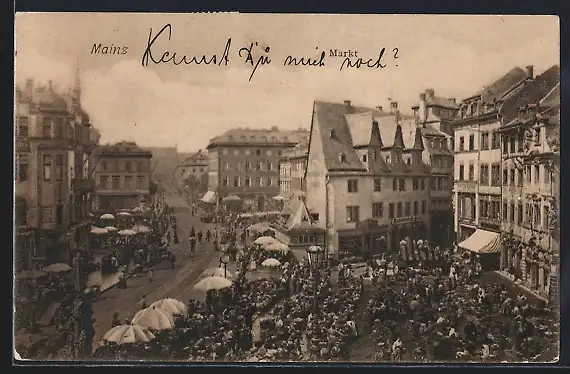 Mainz
Kennst Du mich noch?
Markt